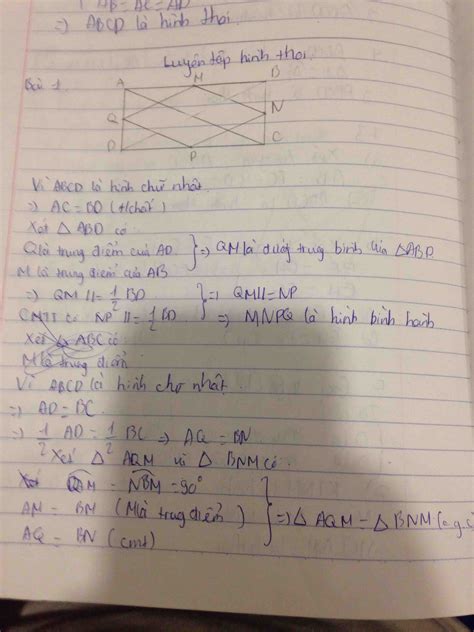 AB = AC = AD
=> ABCD là hình thoi
Luyện tập hình thoi
Bài 1.
A M B
Q N
D P C
Vì ABCD là hình chữ nhật
=> AC = BD (t/chất)
Xét △ ABD có
Q là trung điểm của AD } => QM là đường trung bình của △ABD
M là trung điểm của AB
=> QM // = 1/2 BD } => QM // = NP
CMTT có NP // = 1/2 BD => MNPQ là hình bình hành
Xét △ ABC có
M là trung điểm
Vì ABCD là hình chữ nhật
=> AD = BC
=> 1/2 AD = 1/2 BC => AQ = BN
Xét △ AQM và △ BNM có
QAM = NBM = 90°
AM = BM (M là trung điểm) } => △ AQM = △ BNM (c.g.c)
AQ = BN (cmt)